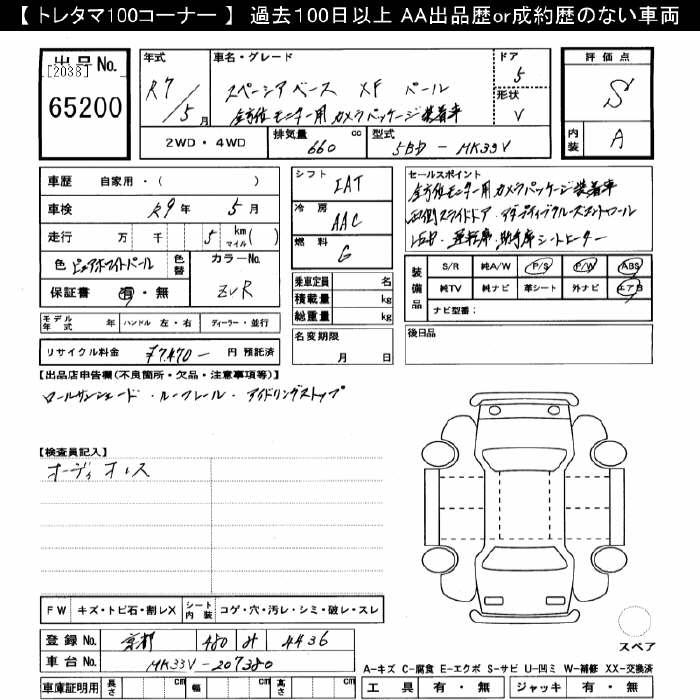 【 トレタマ100コーナー 】 過去100日以上 AA出品歴or成約歴のない車両
出品No.
[2038]
65200
年式
R7/5月
車名・グレード
スペーシアベース XF パール
全方位モニター用カメラパッケージ装着車
ドア
5
形状
V
評価点
S
内装
A
2WD・4WD
排気量 660 cc
型式 5BD-MK33V
車歴 自家用・( )
車検 R9年 5月
走行 万 千 5 km マイル ( )
色 ピュアホワイトパール
色替
カラーNo.
ZVR
保証書 有・無
シフト IAT
冷房 AAC
燃料 G
乗車定員 名
積載量 kg
総重量 kg
セールスポイント
全方位モニター用カメラパッケージ装着車
両側スライドドア アダプティブクルーズコントロール
LED・運転席、助手席シートヒーター
装備品
S/R 純A/W P/S P/W ABS
純TV 純ナビ 革シート 外ナビ エアB
ナビ型番:
モデル年式 年 ハンドル 左・右 ディーラー・並行
名変期限
月 日
後日品
リサイクル料金 ¥7,470- 円 預託済
【出品店申告欄(不良箇所・欠品・注意事項等)】
ロールサンシェード・ルーフレール・アイドリングストップ
【検査員記入】
オーディオレス
FW キズ・トビ石・割レX シート内装 コゲ・穴・汚レ・シミ・破レ・スレ
登録No. 京都 480 4436
車台No. MK33V-207380
車庫証明用 長さ cm 幅 cm 高さ cm
スペア
A-キズ C-腐食 E-エクボ S-サビ U-凹ミ W-補修 XX-交換済
工具 有・無 ジャッキ 有・無